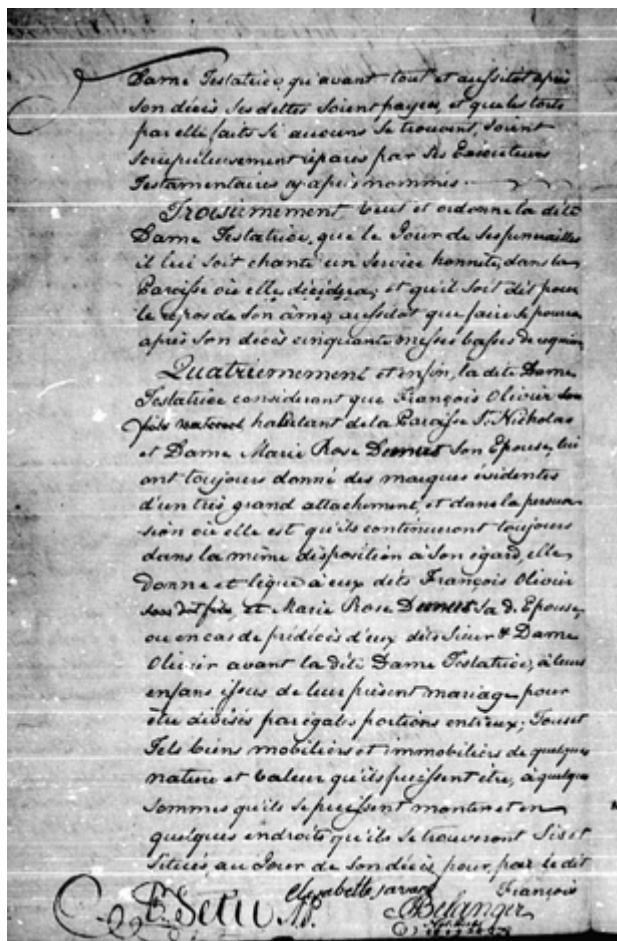 Dame Testatrice, qu'avant tout et aussitôt après
son décès ses dettes soient payées, et que les torts
par elle faits si aucuns se trouvent, soient
scrupuleusement réparés par ses Exécuteurs
Testamentaires cy après nommés.
Troisiemement Veut et ordonne la dite
Dame Testatrice, que le Jour de ses funerailles
il lui soit chanté un Service honnête, dans la
Paroisse où elle décédera, et qu'il soit dit pour
le repos de son âme, aussitôt que faire se pourra
après son décès cinquante messes basses de requiem
Quatriemement et enfin, la dite Dame
Testatrice considerant que François Olivier son
fils habitant de la Paroisse St. Nicholas
et Dame Marie Rose Son Epouse, lui
ont toujours donné des marques évidentes
d'un très grand attachement, et dans la persua-
sion où elle est qu'ils continueront toujours
dans la même disposition à Son égard, elle
donne et lègue à eux dits François Olivier
son dit fils, et Marie Rose Sa d. Epouse,
ou en cas de prédécès d'eux dits Sieur & Dame
Olivier avant la dite Dame Testatrice, à leurs
enfans issus de leur présent mariage pour
être divisés par égales portions entr'eux; Tous et
Tels biens mobiliers et immobiliers de quelque
nature et valeur qu'ils puissent être, à quelque
sommes qu'ils se puissent monter et en
quelques endroits qu'ils se trouveront Sis et
Situés, au Jour de son décès, pour, par le dit
Elisabethe Savard François
N.P. Belanger